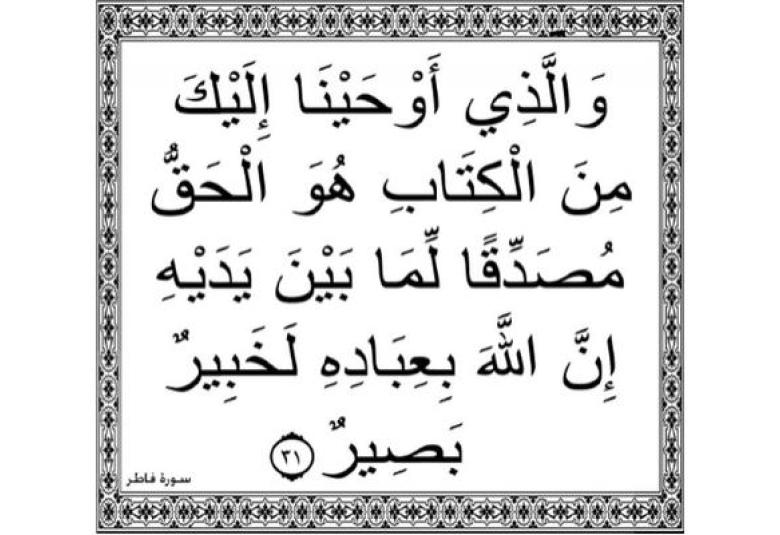 وَالَّذِي أَوْحَيْنَا إِلَيْكَ
مِنَ الْكِتَابِ هُوَ الْحَقُّ
مُصَدِّقًا لِّمَا بَيْنَ يَدَيْهِ
إِنَّ اللَّهَ بِعِبَادِهِ لَخَبِيرٌ
بَصِيرٌ ٣١
سورة فاطر